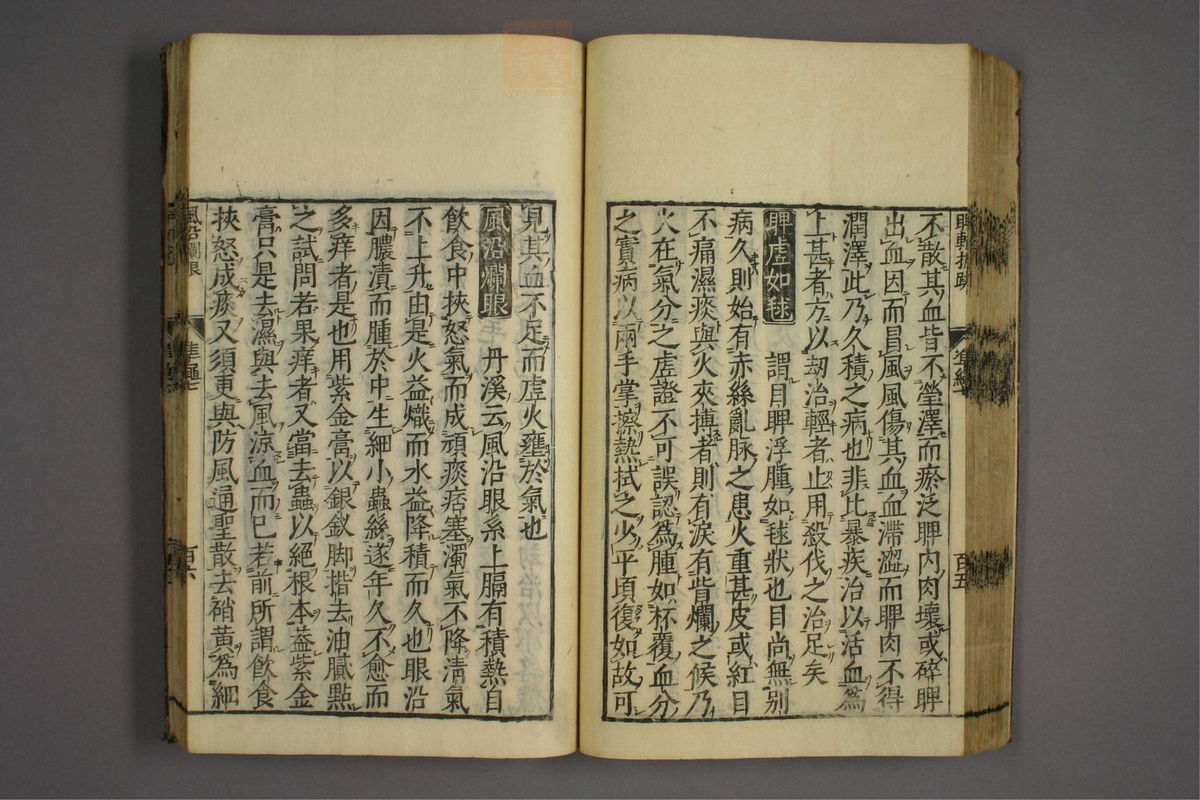 不散其血皆不瑩澤而瘀泛睥内肉壞或碎睥
出血因而冒風風傷其血血滯澀而睥肉不得
潤澤此乃久積之病也非比暴疾治以活血為
上甚者方以刼治輕者止用殺伐之治足矣
睥虚如毬
謂目睥浮腫如毬狀也目尚無别
病久則始有赤絲亂脉之患火重甚皮或紅目
不痛濕痰與火夾搏者則有淚有眥爛之候乃
火在氣分之虚證不可誤認為腫如杯覆血分
之實病以兩手掌擦熱拭之少平頃復如故可
見其血不足而虚火壅於氣也
風沿爛眼
丹溪云風沿眼系上膈有積熱自
飲食中挾怒氣而成頑痰痞塞濁氣不降清氣
不上升由是火益熾而水益降積而久也眼沿
因膿漬而腫於中生細小蟲絲遂年久不愈而
多痒者是也用紫金膏以銀釵脚揩去油膩點
之試問若果痒者又當去蟲以絶根本葢紫金
膏只是去濕與去風凉血而已若前所謂飲食
挾怒成痰又須更與防風通聖散去硝黄為細
風沿爛眼
百六
百五